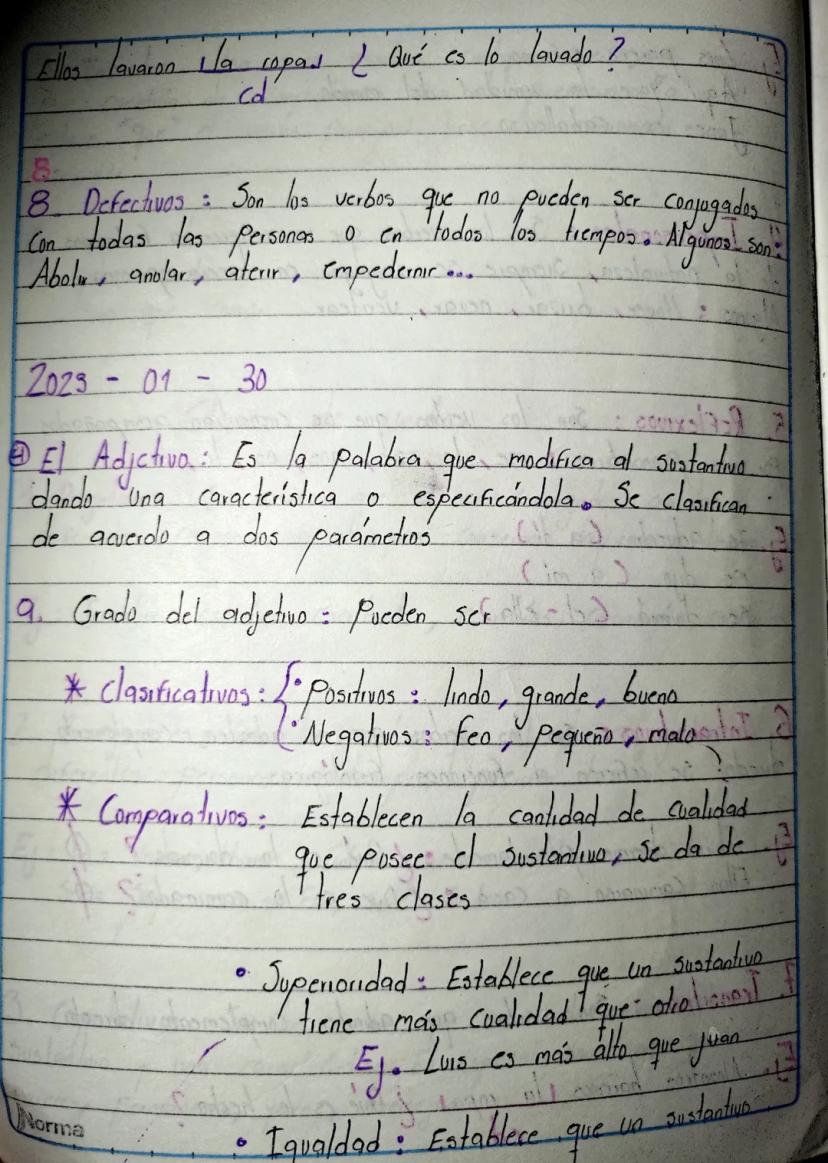 Ellos lavaron la ropa ¿ Qué es lo lavado ?
Cd
8.
8 Defectivos : Son los verbos que no pueden ser conjugados
con todas las personas o en todos los tiempos. Algunos son:
Abolir, anolar, aterir, empedernir...
2023 - 01 - 30
El Adjctivo : Es la palabra que modifica al sustantivo
dando una característica o especificándola. Se clasifican
de acuerdo a dos parámetros
a. Grado del adjetivo : Pueden ser
* Clasificativos : { • Positivos : lindo, grande, bueno
• Negativos : Feo, pequeño, malo
* Comparativos : Establecen la cantidad de cualidad
que posee el sustantivo, se da de
tres clases
• Superioridad : Establece que un sustantivo
tiene más cualidad que otro
Ej. Luis es más alto que juan
• Igualdad : Establece que un sustantivo
Norma